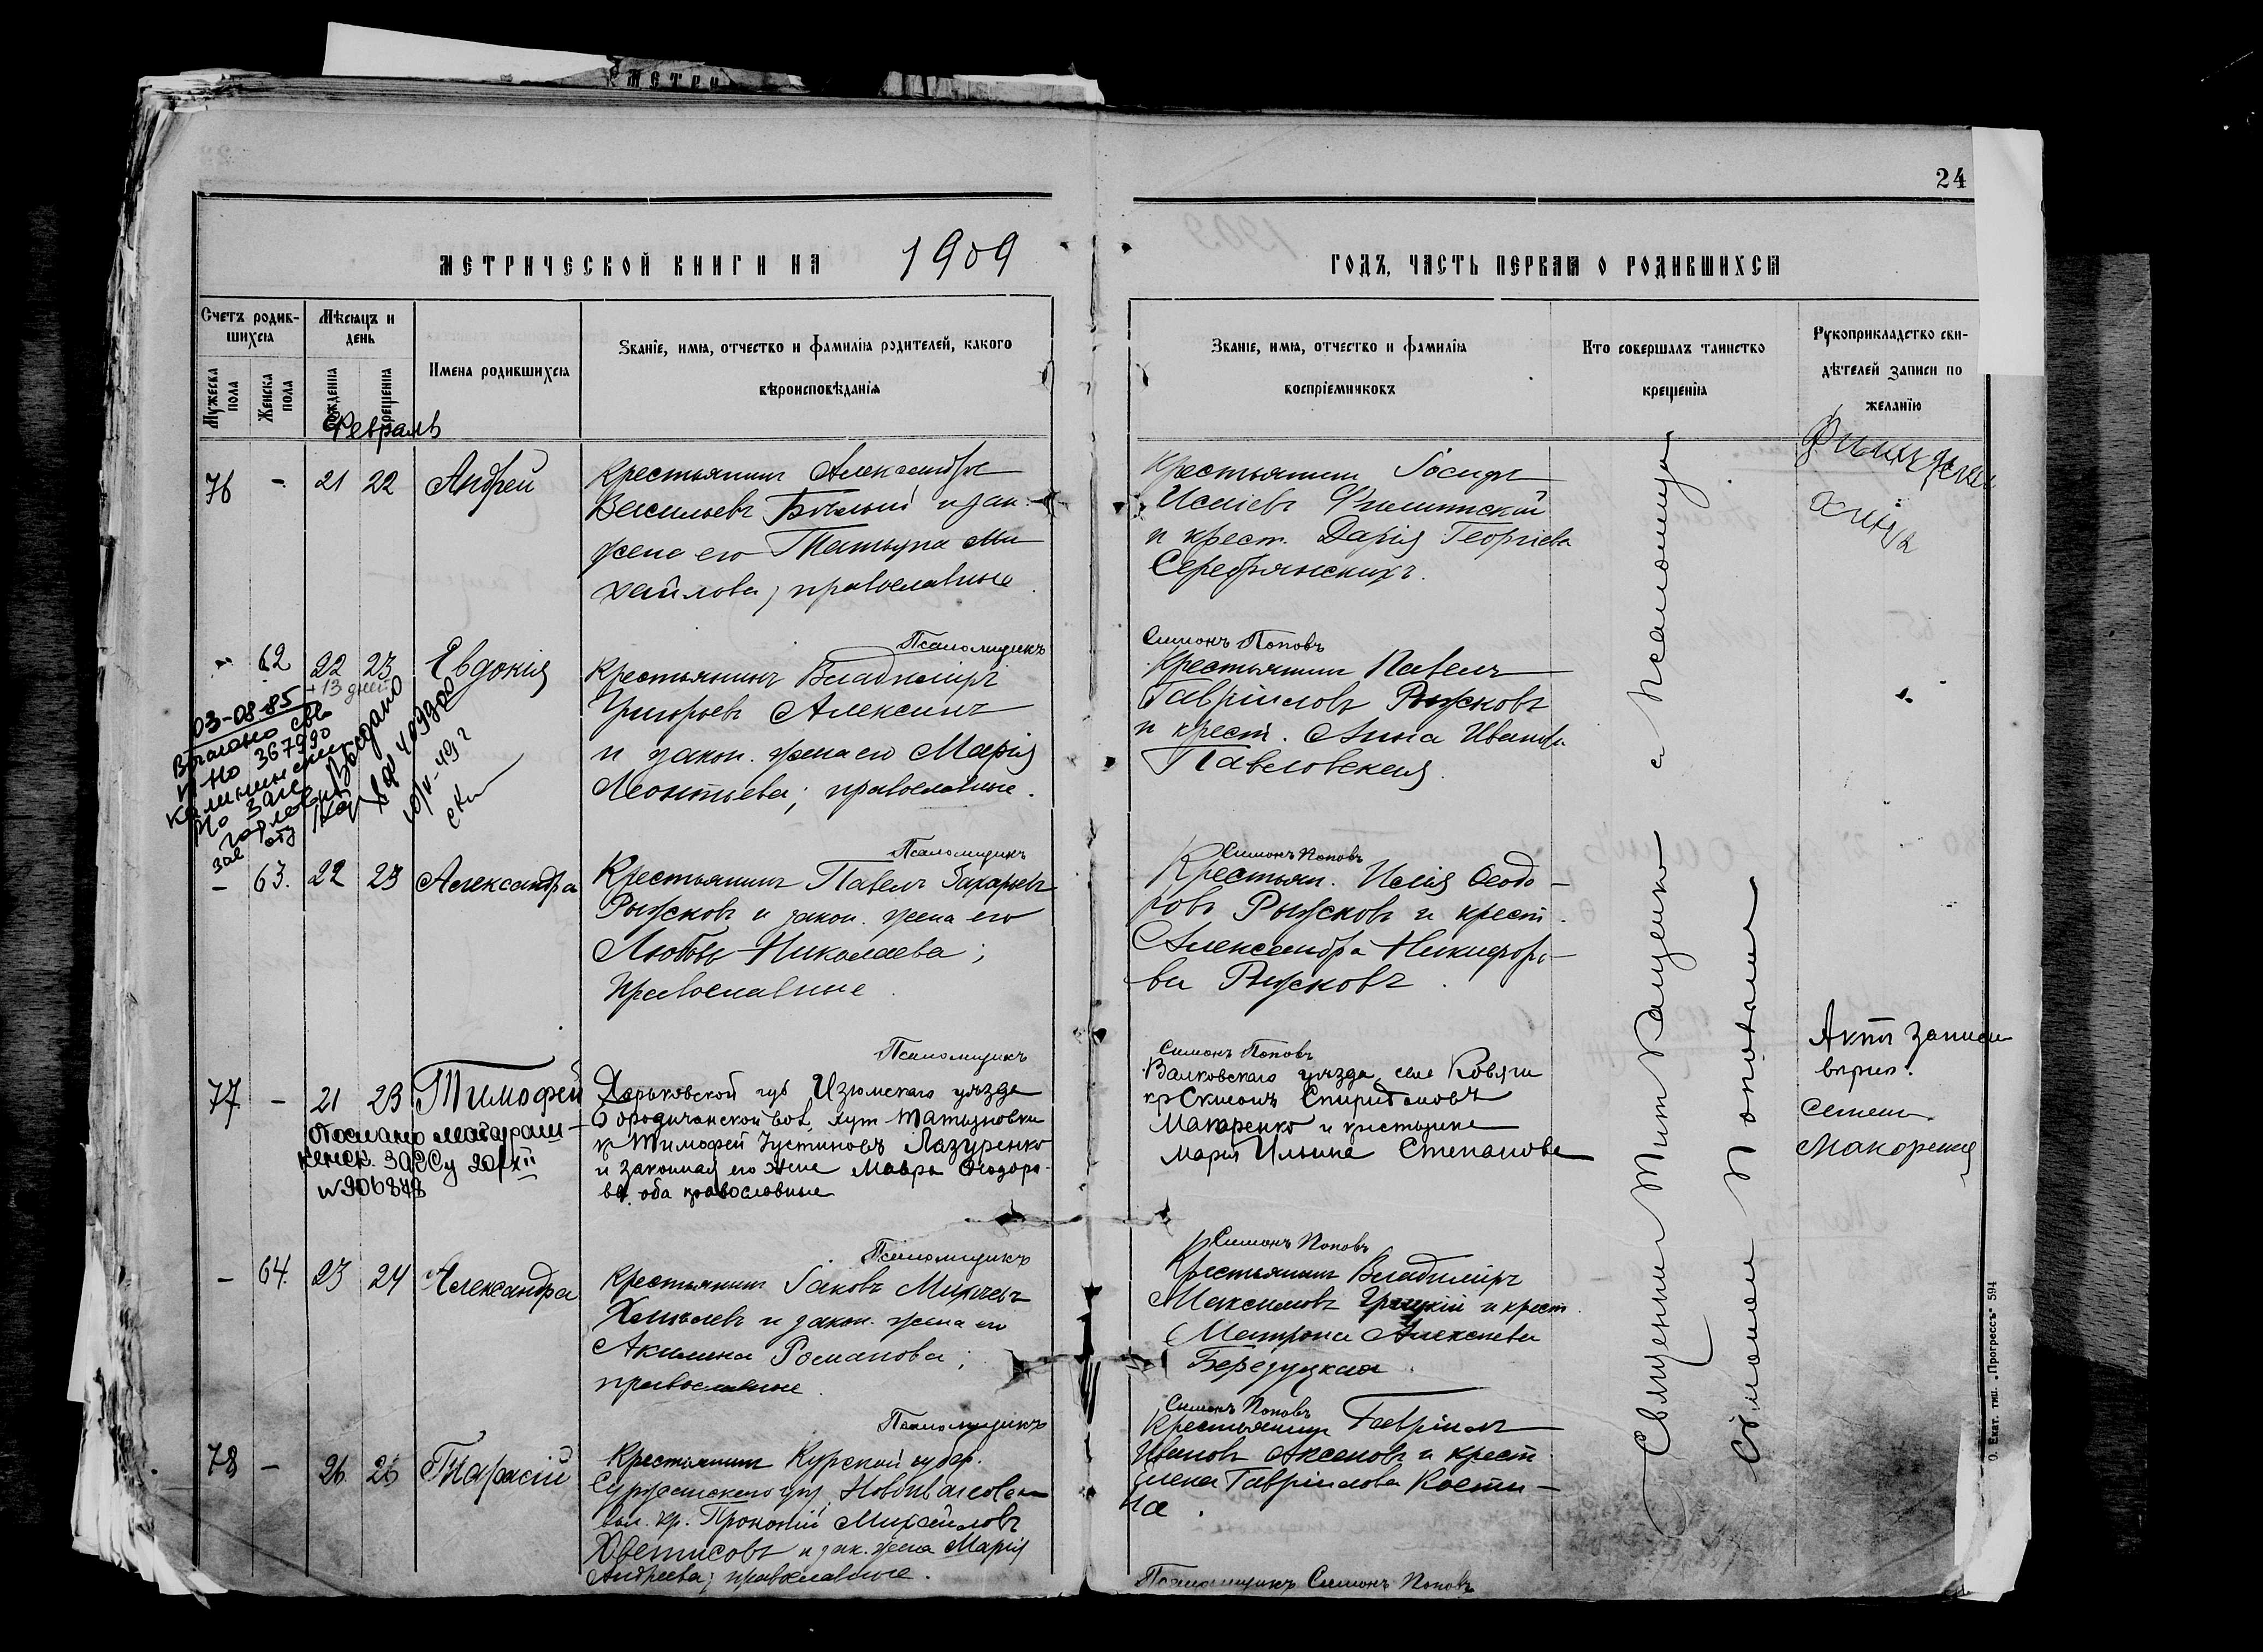 МЕТРИ
24
МЕТРИЧЕСКОЙ КНИГИ НА 1909
ГОДЪ, ЧАСТЬ ПЕРВАЯ О РОДИВШИХСЯ
Счетъ родив-
шихся
Мужеска
пола
Женска
пола
Мѣсяцъ и
день
рожденія
крещенія
Имена родившихся
Званіе, имя, отчество и фамилія родителей, какого
вѣроисповѣданія
Званіе, имя, отчество и фамилія
воспріемниковъ
Кто совершалъ таинство
крещенія
Рукоприкладство сви-
дѣтелей записи по
желанію
Февраль
76 - 21 22 Андрей
Крестьянинъ Александръ
Васильевъ Бѣлый и зак.
жена его Татьяна Ми
хайлова; православные
Крестьянинъ Іосифъ
Исаіевъ Филипскій
и крест. Дарія Георгіева
Серебрянскихъ.
Псаломщикъ Симонъ Поповъ
- 62 22 23 Евдокія
+13 дней
Крестьянинъ Владиміръ
Григорьевъ Алексинъ
и закон. жена его Марія
Леонтьева; православные.
Крестьянинъ Павелъ
Гавріиловъ Рыжковъ
и крест. Анна Иванова
Павловская.
03-08-85
367990
Выдано
409900
Псаломщикъ Симонъ Поповъ
- 63. 22 23 Александра
Крестьянинъ Павелъ Захарьевъ
Рыжковъ и закон. жена его
Любовь Николаева;
православные.
Крестьян. Илія Ѳеодо-
ровъ Рыжковъ и крест.
Александра Никифоро-
ва Рыжковъ.
Псаломщикъ Симонъ Поповъ
77 - 21 23 Тимофей
Харьковской губ Изюмскаго уѣзда
Бородичанской вол, хут
кр Тимофей Іустиновъ Лазуренко
и законная его жена Мавра Ѳеодоро-
ва. оба православные
Валковскаго уѣзда села Ковяги
кр Симонъ Спиридоновъ
Макаренко и крестьянка
Марія Ильина Степанова
Актъ записи
вѣрно.
Семенъ
Макоренко
ЗАГСу 20/XII
№906878
Псаломщикъ Симонъ Поповъ
- 64. 23 24 Александра
Крестьянинъ Іаковъ
и закон. жена его
Акилина Романова;
православные.
Крестьянинъ Владиміръ
Максимовъ и крест.
Матрона Алексѣева
Березуцкая.
Псаломщикъ Симонъ Поповъ
78 - 26 26 Тарасій
Крестьянинъ Курской губер.
Суджанскаго уѣз.
вол. кр. Прокопій Михайловъ
и зак. жена Марія
Андреева; православные.
Крестьянинъ Гавріилъ
Ивановъ Аксеновъ и крест
Елена Гавріилова Кости-
на.
Псаломщикъ Симонъ Поповъ
Священникъ Титъ Ващенко съ Псаломщи
Симономъ Поповымъ
О. Екат. тип. „Прогрессъ" 594